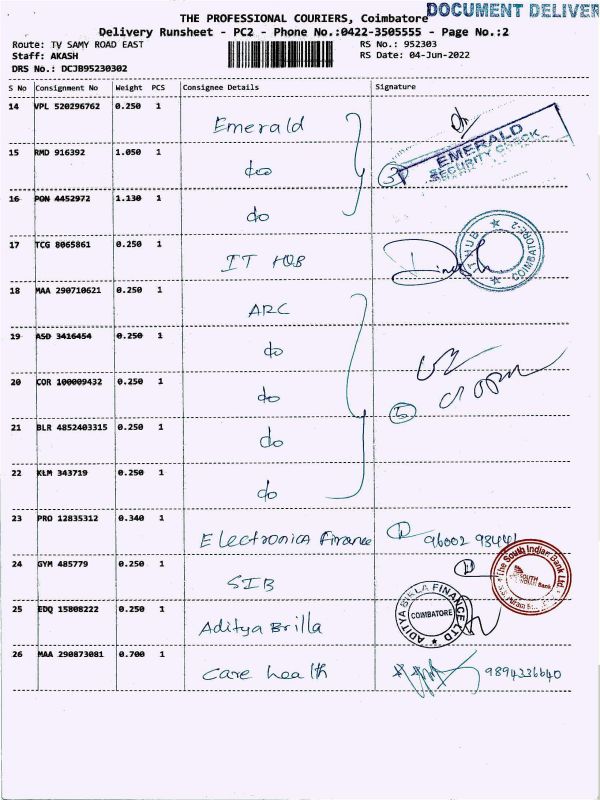 DOCUMENT DELIVER
THE PROFESSIONAL COURIERS, Coimbatore
Delivery Runsheet - PC2 - Phone No.:0422-3505555 - Page No.:2
Route: TV SAMY ROAD EAST
RS No.: 952303
Staff: AKASH
RS Date: 04-Jun-2022
DRS No.: DCJB95230302
S No Consignment No Weight PCS Consignee Details Signature
14 VPL 520296762 0.250 1 Emerald
EMERALD
SECURITY CHECK
15 RMD 916392 1.050 1 do 3
16 PON 4452972 1.130 1 do
17 TCG 8065861 0.250 1 IT HUB Dinesh
IT HUB COIMBATORE-2
18 MAA 290710621 0.250 1 ARC
19 ASD 3416454 0.250 1 do
20 COR 100009432 0.250 1 do 5
21 BLR 4852403315 0.250 1 do
22 KLM 343719 0.250 1 do
23 PRO 12835312 0.340 1 Electronica Finance 1
24 GYM 485779 0.250 1 SIB
The South Indian Bank Ltd.
SOUTH INDIAN Bank
25 EDQ 15808222 0.250 1 Aditya Brilla
ADITYA BIRLA FINANCE LTD
COIMBATORE
26 MAA 290873081 0.700 1 Care health 9894336640